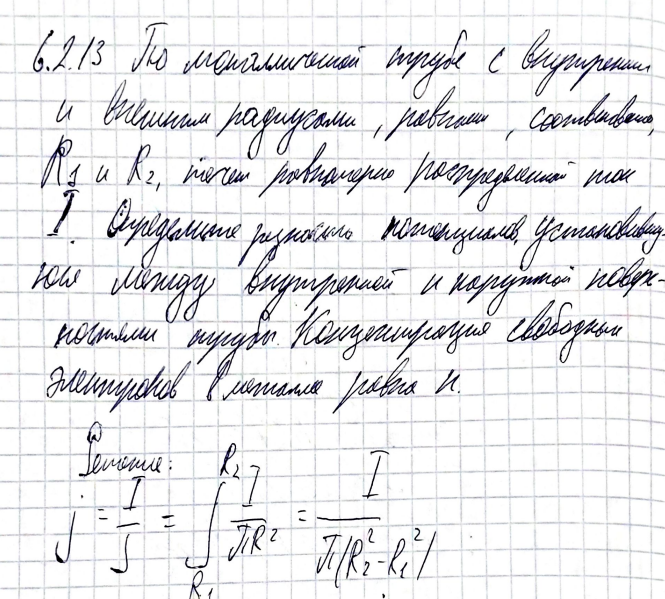 6.2.13 По металлической трубе с внутренним
и внешним радиусами, равными, соответственно,
R₁ и R₂, течет равномерно распределенный ток
I. Определите разность потенциалов, установившу-
юся между внутренней и наружной поверх-
ностями трубы. Концентрация свободных
электронов в металле равна n.
Решение:
j = I/S = ∫_{R₁}^{R₂} I/(πR²) = I/(π(R₂²-R₁²))